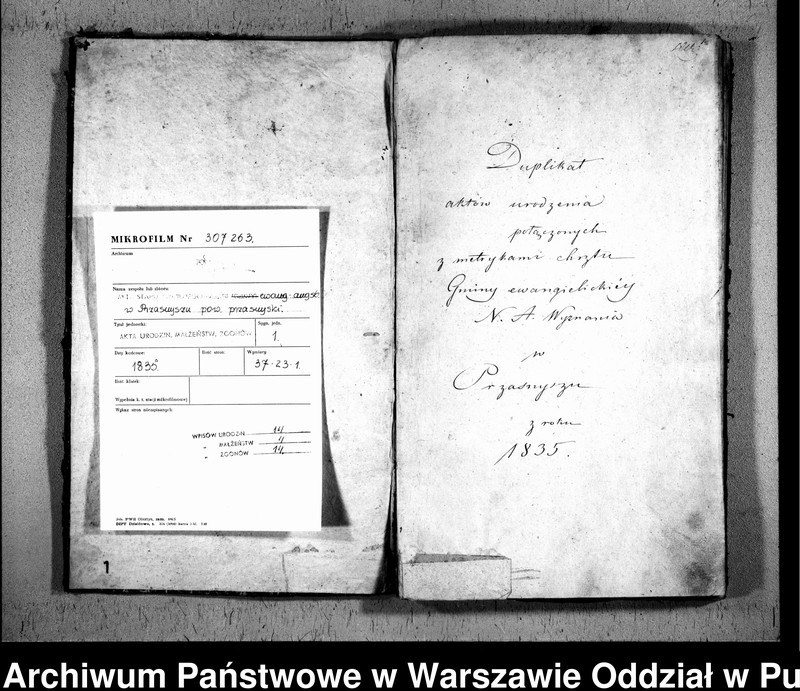 MIKROFILM Nr 307263.
Archiwum
Nazwa zespołu lub zbioru:
AKTA STANU CYWILNEGO ewang. augsb.
w Przasnyszu pow. przasnyski.
Tytuł jednostki:
AKTA URODZIN, MAŁŻEŃSTW, ZGONÓW
Sygn. jedn.
1.
Daty końcowe:
1835
Ilość stron:
Wymiary
37-23-1.
Ilość klatek:
Wypełnia k. t. stacji mikrofilmowej
Wykaz stron niezapisanych
WPISÓW URODZIN 14
" MAŁŻEŃSTW 4
" ZGONÓW 14.
1
Duplikat
aktów urodzenia
połączonych
z metrykami chrztu
Gminy ewangielickiéy
N. A. Wyznania
w
Przasnyszu
z roku
1835.
Archiwum Państwowe w Warszawie Oddział w Pu